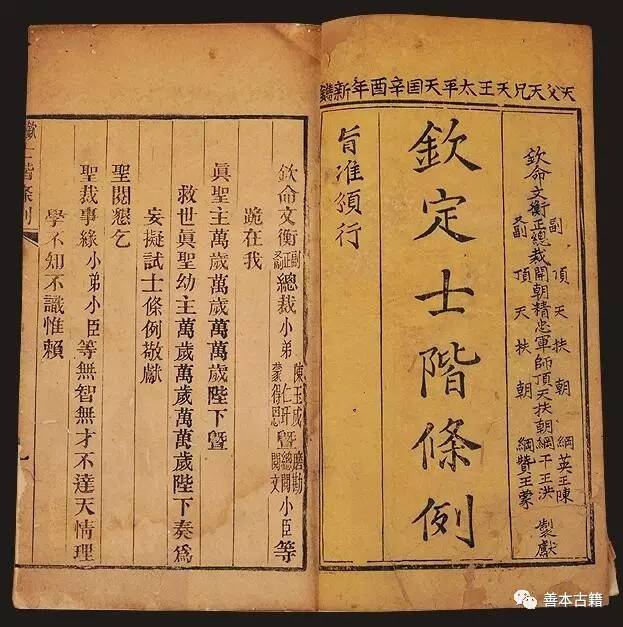 天父天兄天王太平天囯辛酉年新
副 頂天扶朝綱英王陳
欽命文衡正總裁開朝精忠軍師頂天扶朝綱干王洪 製獻
又副 頂天扶朝綱贊王蒙
欽定士階條例
旨准頒行
欽命文衡副正又副總裁小弟陳玉成仁玕蒙得恩暨磨勘總閱閱文小臣等
跪在我
眞聖主萬歲萬歲萬萬歲陛下暨
救世眞聖幼主萬歲萬歲萬萬歲陛下奏爲
妄擬試士條例敬獻
聖閱懇乞
聖裁事緣小弟小臣等無智無才不達天情理
學不知不識惟賴
善本古籍